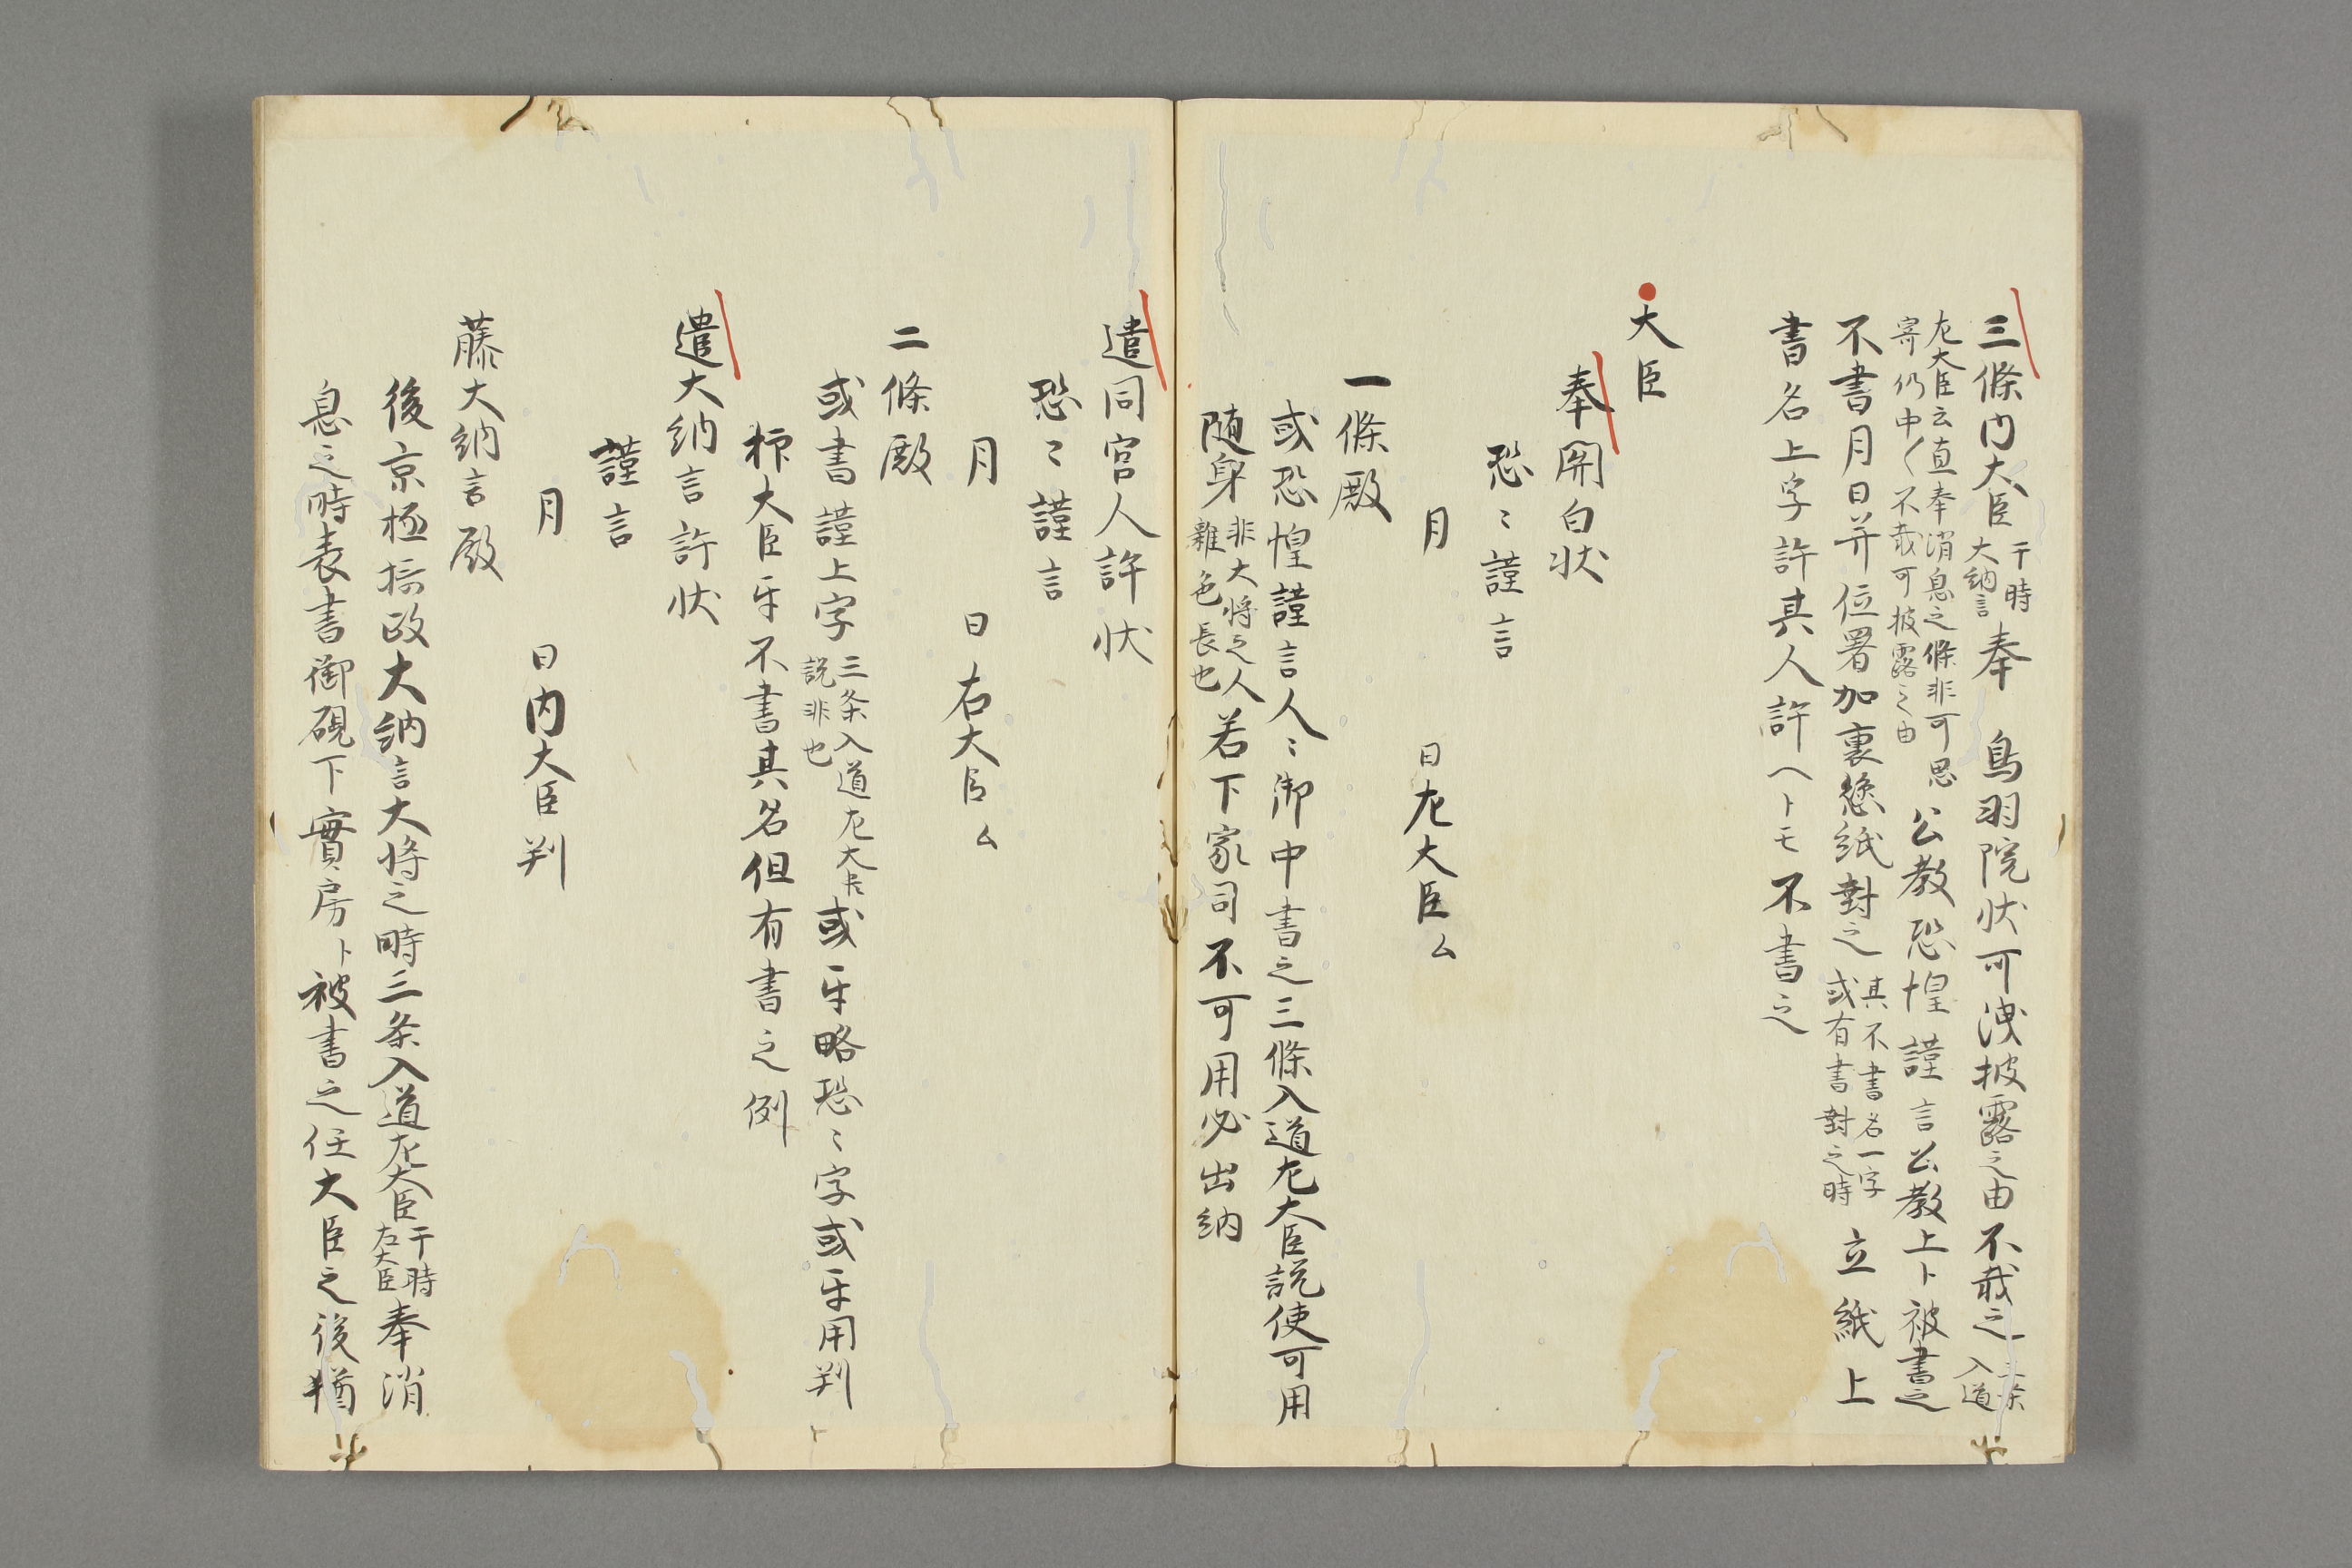 三條内大臣于時大納言奉　鳥羽院状可洩披露之由不載之三条入道
左大臣云直奉消息之條非可思寄仍中〱不載可披露之由公教恐惶謹言公教上ト被書之
不書月日并位署加裏懸紙對之其不書名一字或有書對之時立紙上
書名上字許其人許ヘトモ不書之
大臣
奉関白状
恐々謹言
月　日左大臣ム
一條殿
或恐惶謹言人々御中書之三條入道左大臣説使可用
随身非大将之人雜色長也若下家司不可用必出納
遣同宮人許状
恐々謹言
月　日右大臣ム
二條殿
或書謹上字三条入道左大臣説非也或乍略恐々字或乍用判
大臣乍不書其名但有書之例
遣大納言許状
謹言
月　日内大臣判
藤大納言殿
後京極摂政大納言大将之時三条入道左大臣于時右大臣奉消
息之時表書御硯下實房ト被書之任大臣之後猶